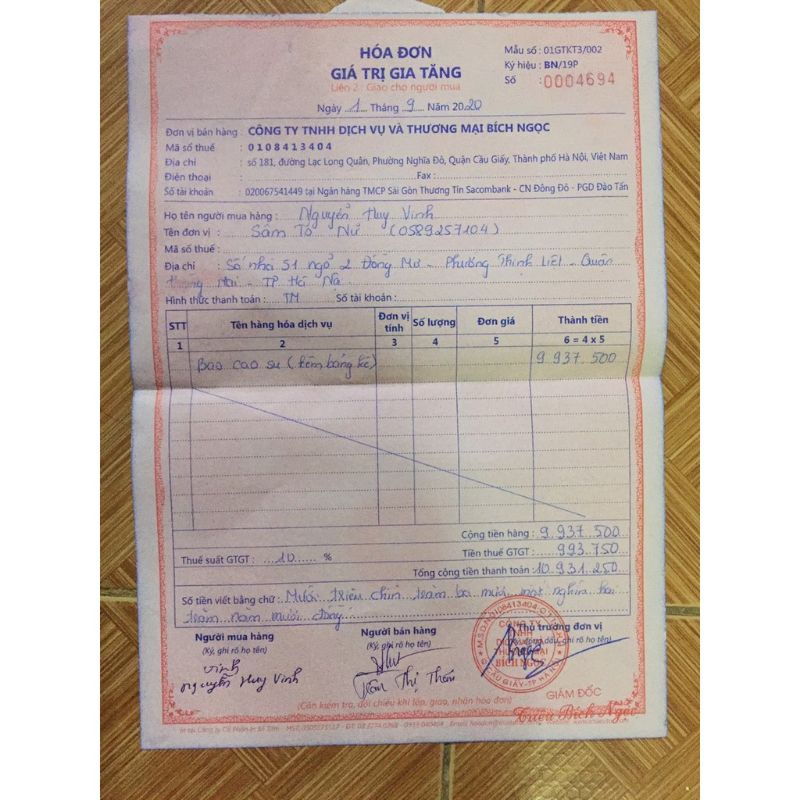 HÓA ĐƠN
GIÁ TRỊ GIA TĂNG
Liên 2 : Giao cho người mua
Mẫu số : 01GTKT3/002
Ký hiệu : BN/19P
Số : 0004694
Ngày 1 Tháng 9 Năm 2020
Đơn vị bán hàng : CÔNG TY TNHH DỊCH VỤ VÀ THƯƠNG MẠI BÍCH NGỌC
Mã số thuế : 0108413404
Địa chỉ : số 181, đường Lạc Long Quân, Phường Nghĩa Đô, Quận Cầu Giấy, Thành phố Hà Nội, Việt Nam
Điện thoại : Fax :
Số tài khoản : 020067541449 tại Ngân hàng TMCP Sài Gòn Thương Tín Sacombank - CN Đông Đô - PGD Đào Tấn
Họ tên người mua hàng : Nguyễn Huy Vinh
Tên đơn vị : Sâm Tố Nữ (0589257104)
Mã số thuế :
Địa chỉ : Số nhà 51 ngõ 2 Đồng Mơ - Phường Thịnh Liệt - Quận
Hoàng Mai - TP Hà Nội
Hình thức thanh toán : TM Số tài khoản :
STT Tên hàng hóa dịch vụ Đơn vị tính Số lượng Đơn giá Thành tiền
1 2 3 4 5 6 = 4 x 5
Bao cao su (kèm bảng kê) 9 937 500
Cộng tiền hàng : 9 937 500
Thuế suất GTGT : 10 % Tiền thuế GTGT : 993.750
Tổng cộng tiền thanh toán : 10 931.250
Số tiền viết bằng chữ : Mười triệu chín trăm ba mươi mốt nghìn hai
trăm năm mươi đồng
Người mua hàng Người bán hàng Thủ trưởng đơn vị
(Ký, ghi rõ họ tên) (Ký, ghi rõ họ tên) đóng dấu, ghi rõ họ tên)
Vinh
Nguyễn Huy Vinh
Trần Thị Thắm
M.S.D.N:0108413404
CÔNG TY
TNHH
BÍCH NGỌC
CẦU GIẤY-TP HÀ NỘI
GIÁM ĐỐC
Triệu Bích Ngọc
(Cần kiểm tra, đối chiếu khi lập, giao, nhận hóa đơn)